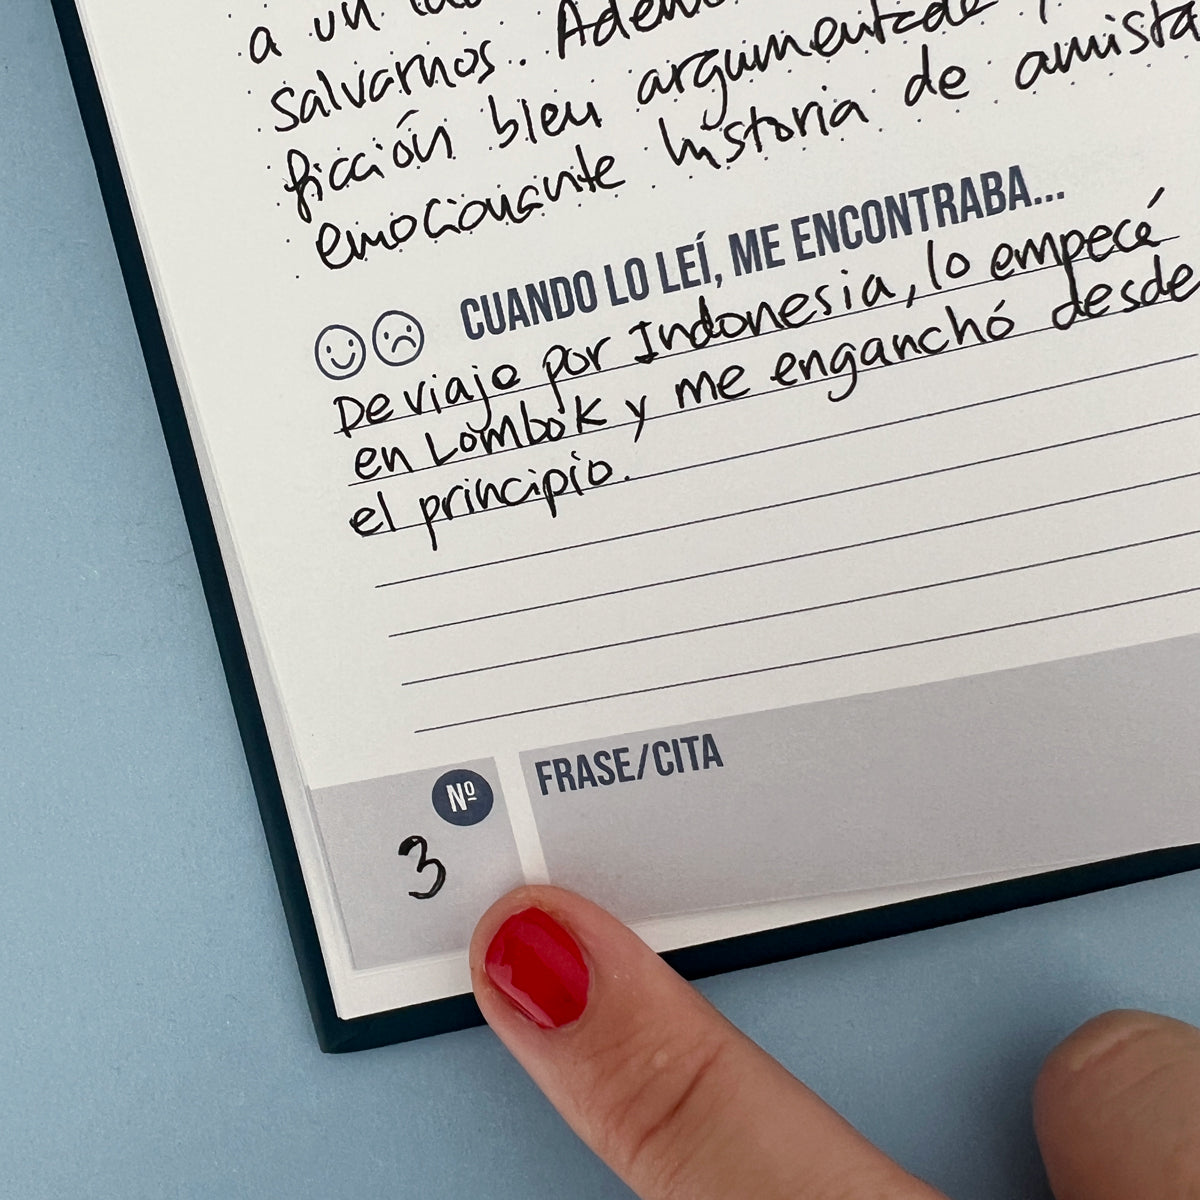 a un
salvarnos. Además
ficción bien argumentada
emocionante historia de amista
CUANDO LO LEÍ, ME ENCONTRABA...
De viaje por Indonesia, lo empecé
en Lombok y me enganchó desde
el principio.
Nº
3
FRASE/CITA